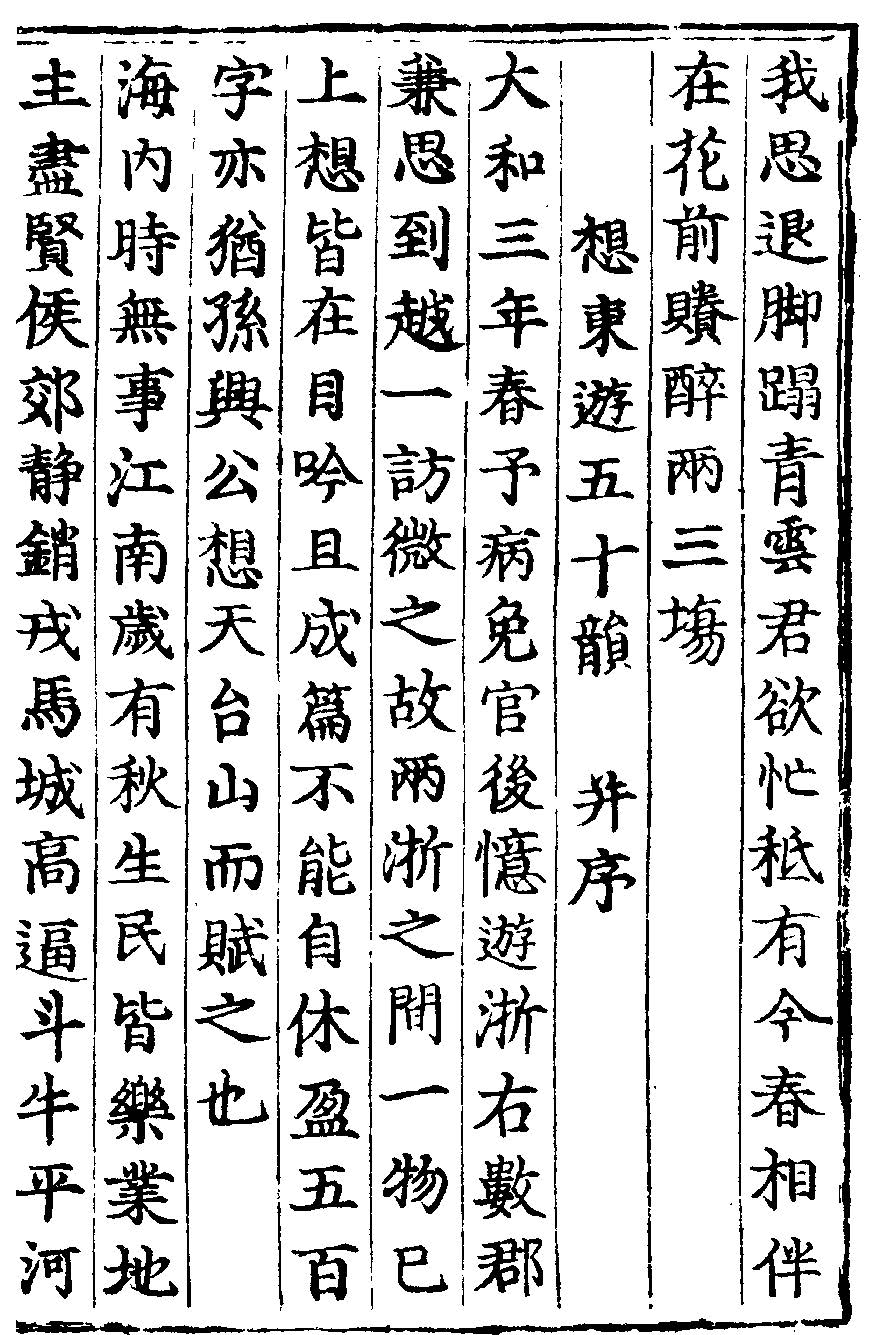 我思退脚蹋青雲君欲忙秪有今春相伴
在花前賸醉兩三場
想東遊五十韻　并序
大和三年春予病免官後憶遊浙右數郡
兼思到越一訪微之故兩浙之間一物已
上想皆在目吟且成篇不能自休盈五百
字亦猶孫興公想天台山而賦之也
海内時無事江南歲有秋生民皆樂業地
主盡賢侯郊静銷戎馬城高逼斗牛平河